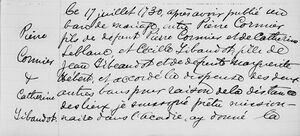 Pierre
Cormier
&
Catherine
Gibaudot.
Ce 17 juillet 1730, après avoir publié un
bans de mariage, entre Pierre Cormier
fils de defunt Pierre Cormier et de Catherine
Leblanc et Cécile Tibaudot, file de
Jean Tibeaudot et de defunte marguerite
hébert, et accordé la dispense des deux
autres bans pour raison de la distance
des lieux, je soussigné prêtre mission-
naire dans l'acadie, ay donné la